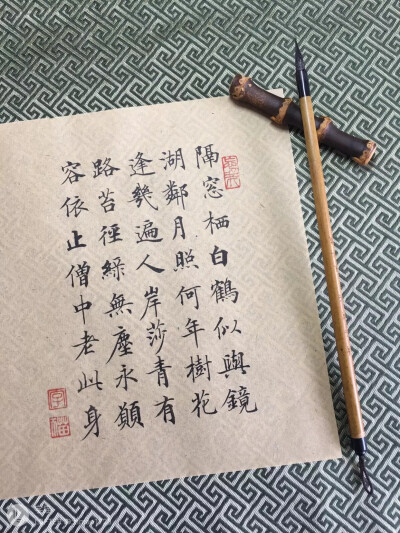 隔窓栖白鶴似與鏡
湖鄰月照何年樹花
逢幾遍人岸莎青有
路苔徑綠無塵永願
容依止僧中老此身